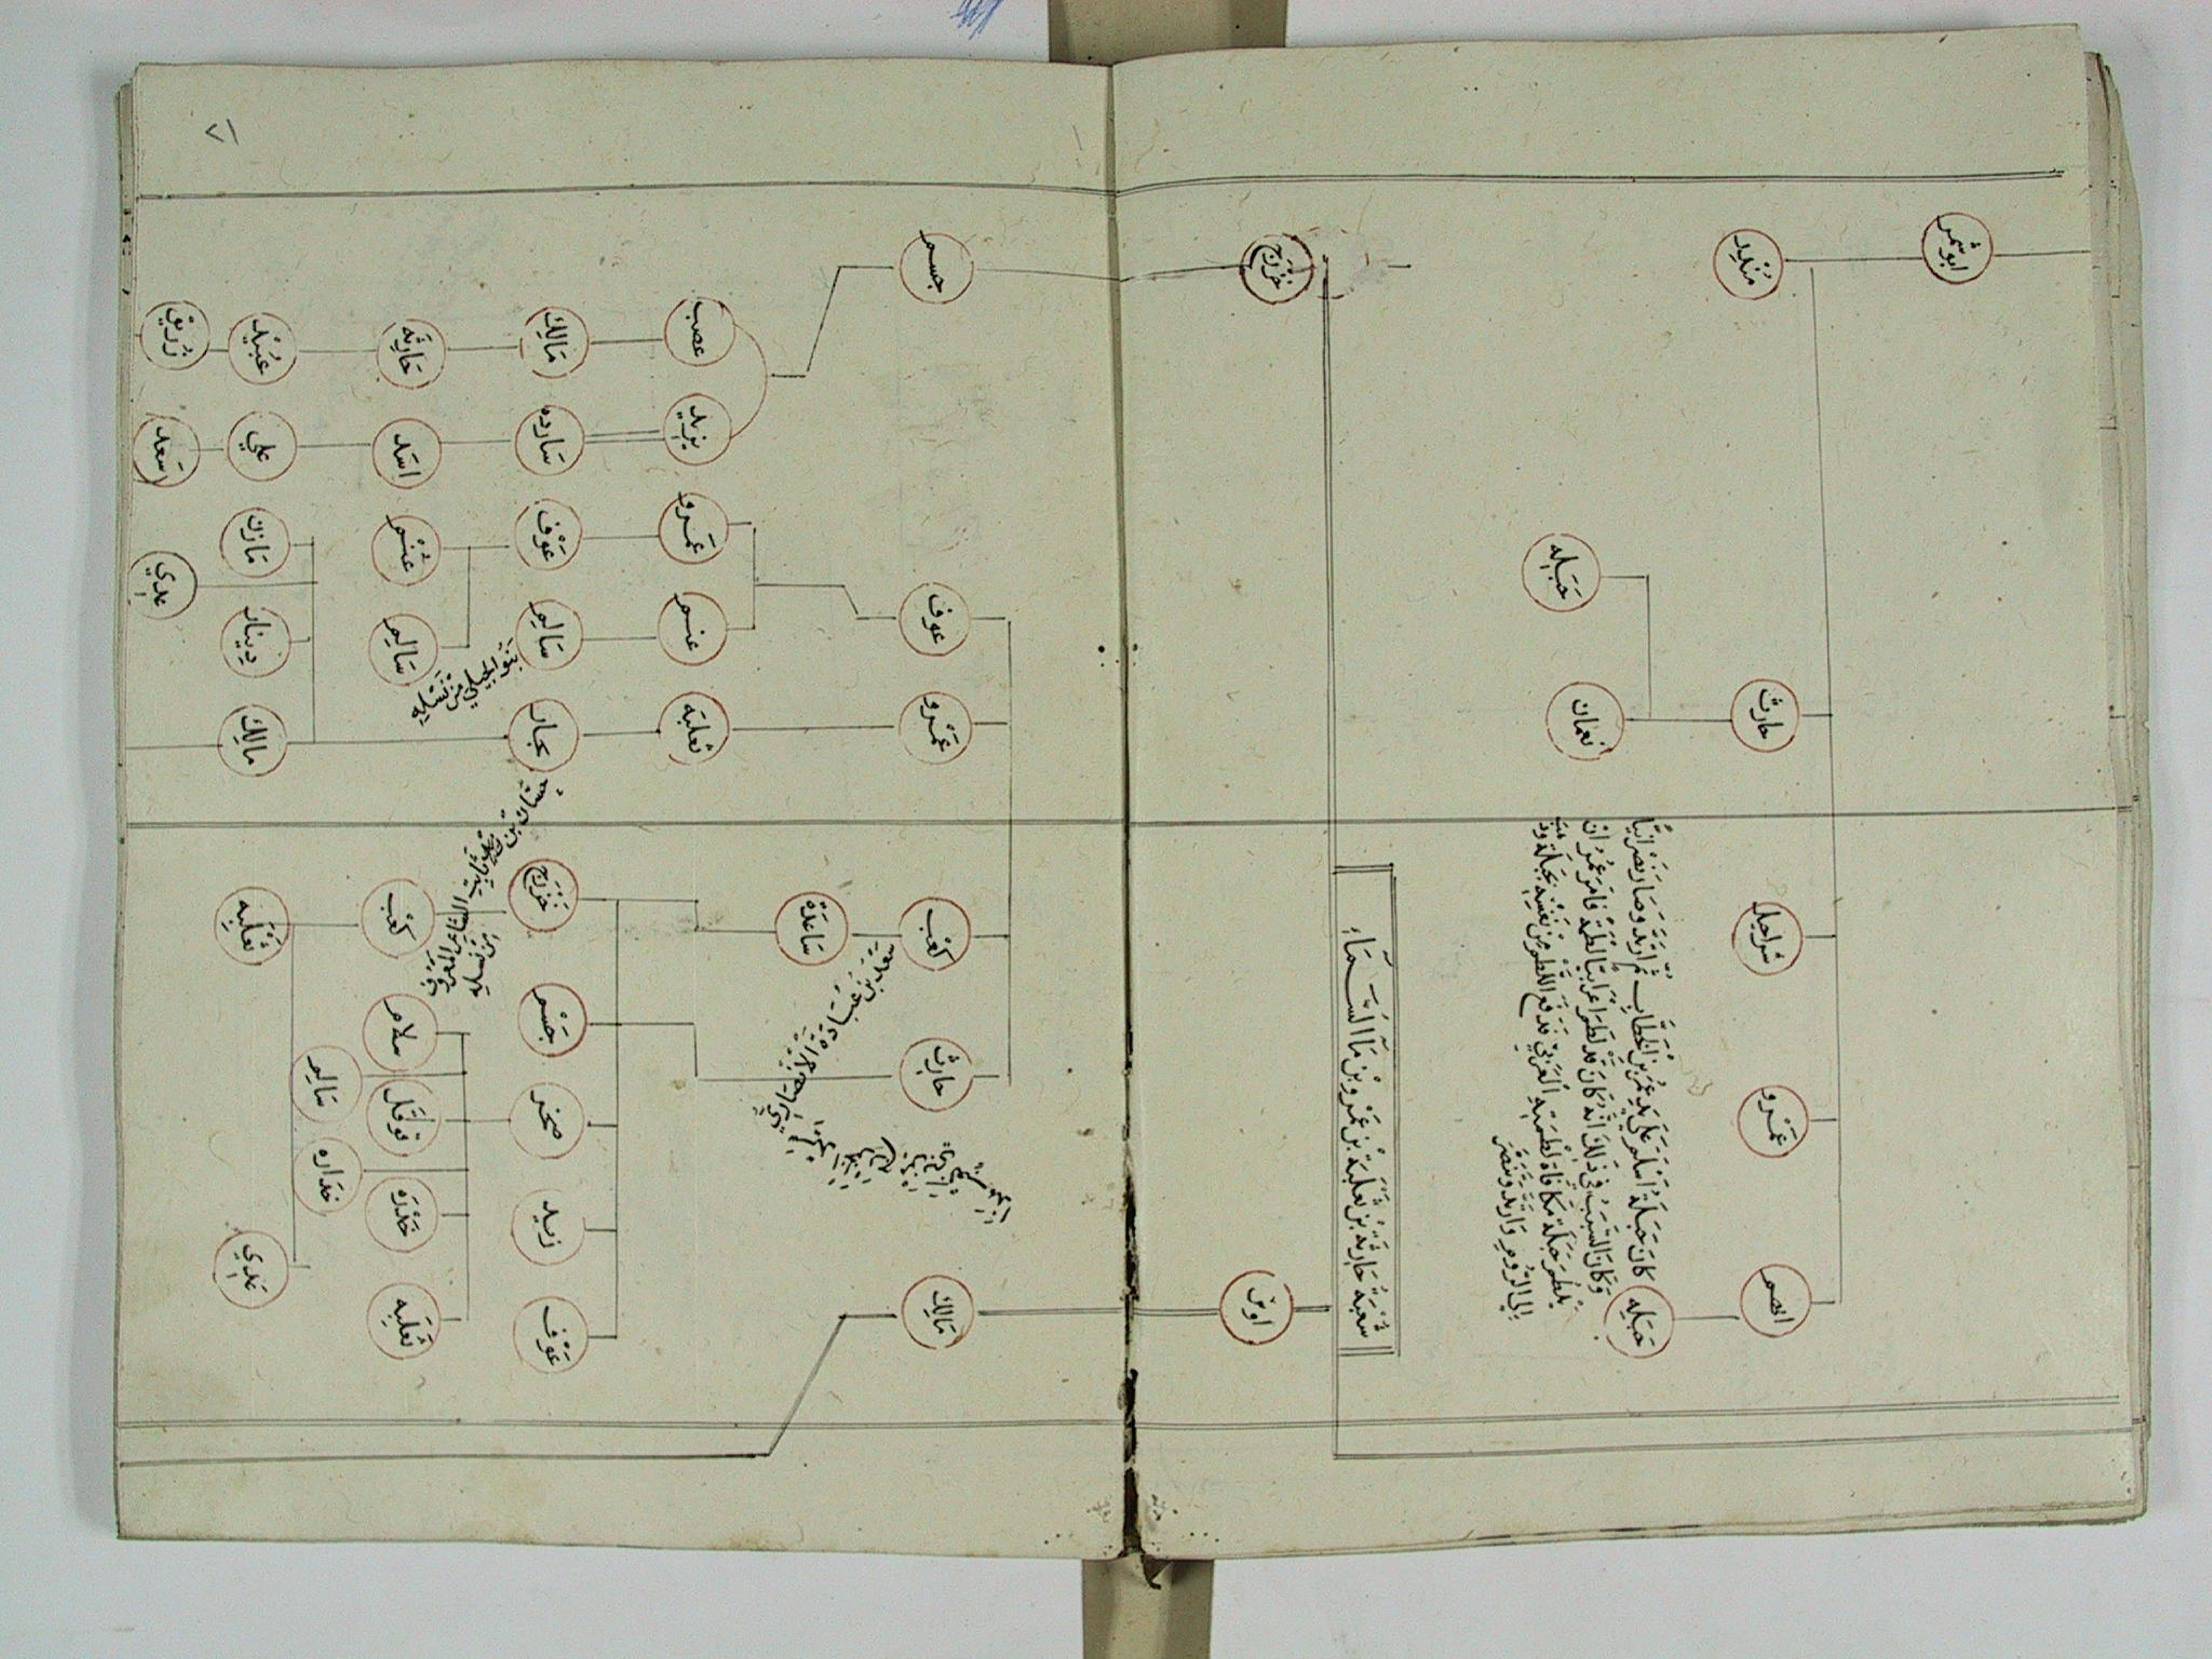 ٧١
ابو شمر
منذر
حارث
شراحيل
عمرو
ايهم
جبله
نعمان
جبله
كان جبلة اسلم على يد عمر بن الخطاب ثم ارتد وصار نصرانيا
وكان السبب في ذلك انه كان قد لطم اعرابيا لطمة فامر عمر ان
يلطم جبلة مكافاة لطمته العربي فدفع اللطم من نفسه
الى الروم وارتد وتنصر
شعبة حارثة بن ثعلبة بن عمرو بن ماء السماء
خزرج
اوس
جسم
عوف
عمرو
كعب
حارث
مالك
ساعده
عصب
يزيد
عمرو
عنم
ثعلبه
مالك
سارده
عوف
سالم
نجار
خزرج
جسم
صخر
زيد
عوف
حارثه
اسد
عنم
سالم
بنو الحبلى من نسله
كعب
سلام
قوقل
خدره
ثعلبه
سالم
خداره
عبيد
علي
مازن
دينار
مالك
ثعلبه
عدي
زريق
سعد
عدي